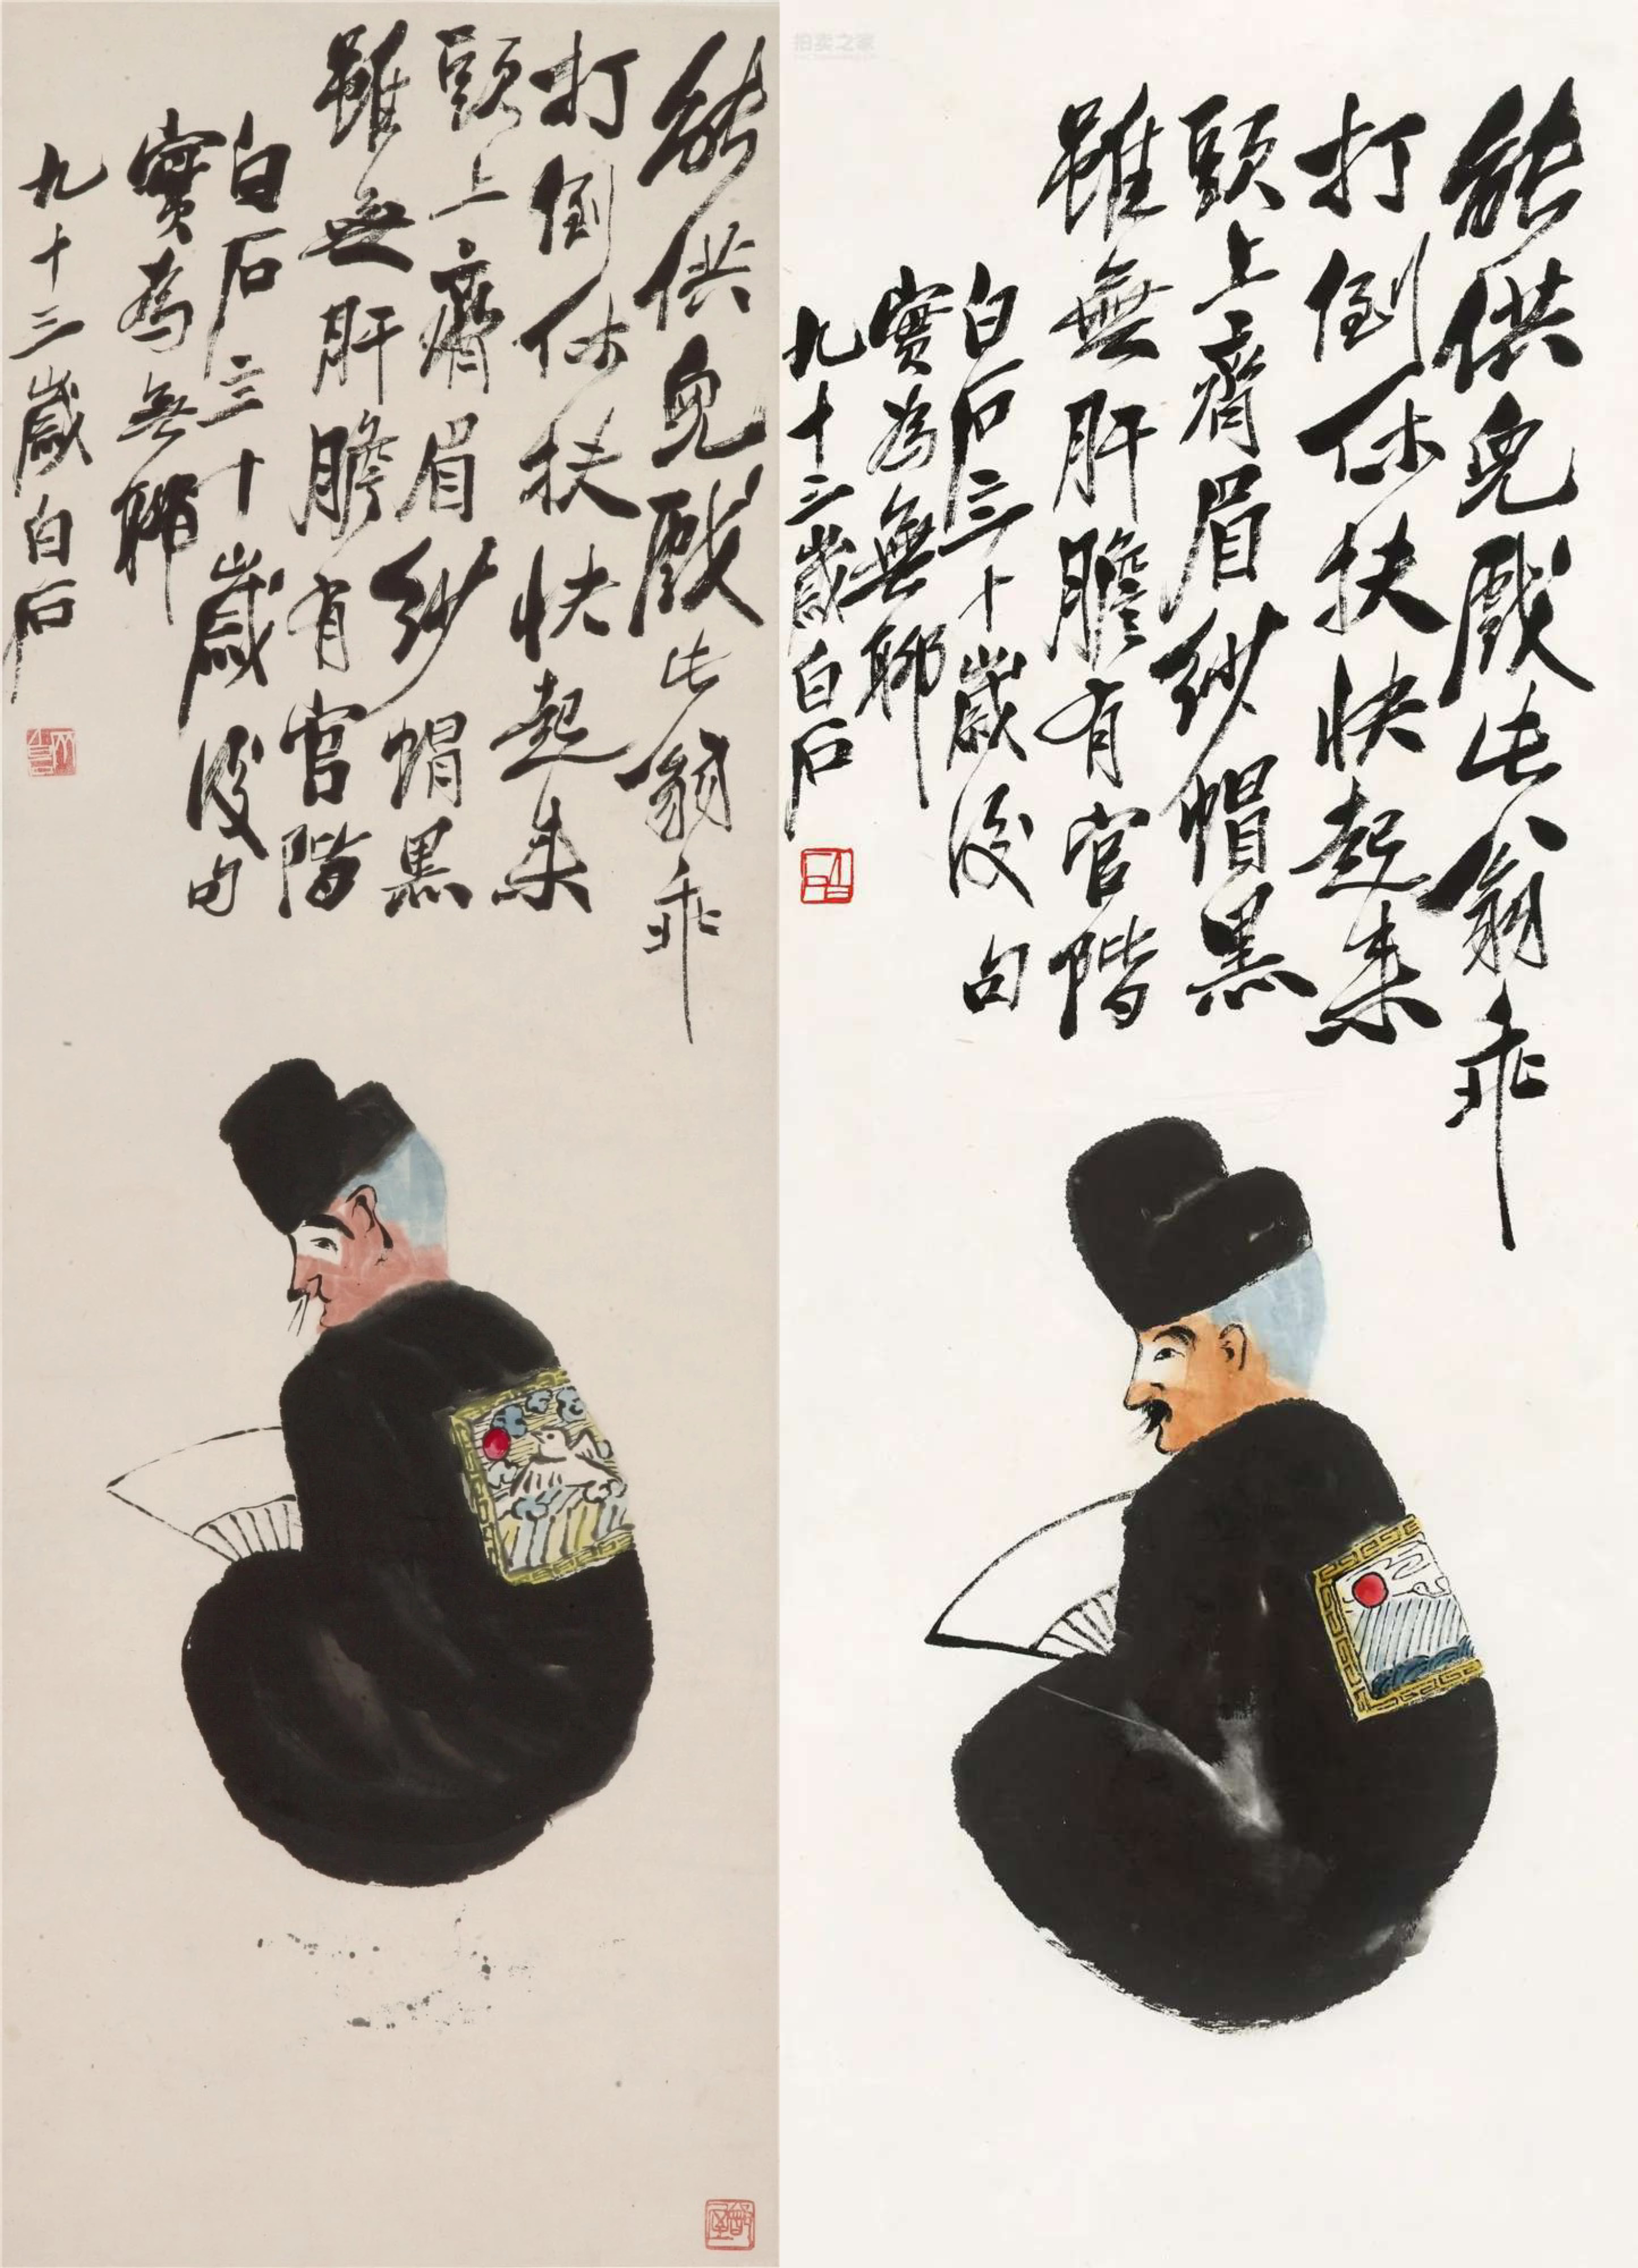 能供兒戲此翁乖
打倒休扶快起來
頭上齊眉紗帽黑
雖無肝膽有官階
白石三十歲後句
實為無聊
九十三歲白石
拍卖之家
能供兒戲此翁乖
打倒休扶快起來
頭上齊眉紗帽黑
雖無肝膽有官階
白石三十歲後句
實為無聊
九十三歲白石